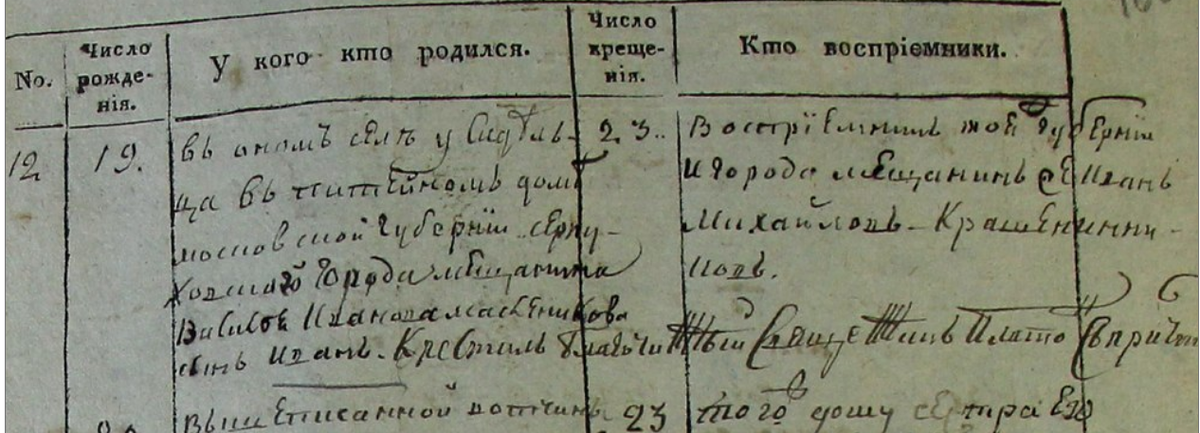 No.
Число рожде- нія.
У кого кто родился.
Число креще- нія.
Кто воспріемники.
12 19.
въ ономъ селѣ у Сидѣль-
ца въ питѣйномъ домѣ
московской губерніи серпу-
ховскаго города мещанина
Ивановамасленикова
сынъ иванъ. Крестилъ
23.
Воспріемникъ той губерніи
и города мещанинъ Иванъ
Михайловъ Крашенинни-
ковъ.
Плато
вышеписанной вотчины 23 того